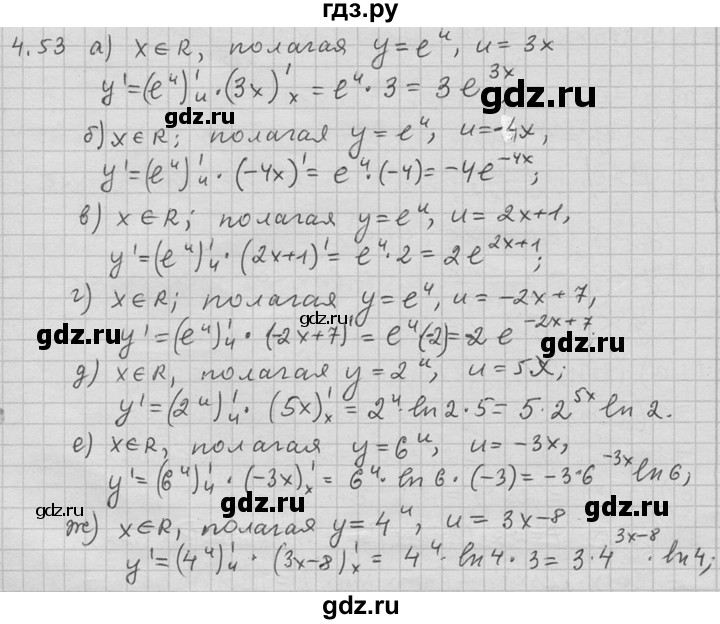 гдз.ру
4.53 а) x∈R, полагая y=e^u, u=3x
y'=(e^u)'_u·(3x)'_x=e^u·3=3e^{3x}
gdz.ru
б) x∈R; полагая y=e^u, u=-4x,
gdz.ru
y'=(e^u)'_u·(-4x)'=e^u·(-4)=-4e^{-4x};
в) x∈R; полагая y=e^u, u=2x+1,
y'=(e^u)'_u·(2x+1)'=e^u·2=2e^{2x+1};
г) x∈R; полагая y=e^u, u=-2x+7,
gdz.ru
gdz.ru y'=(e^u)'_u·(-2x+7)'=e^u(-2)=-2e^{-2x+7}
gdz.ru
д) x∈R, полагая y=2^u, u=5x;
y'=(2^u)'_u·(5x)'_x=2^u·ln2·5=5·2^{5x}ln2.
е) x∈R, полагая y=6^u, u=-3x,
y'=(6^u)'_u·(-3x)'_x=6^u·ln6·(-3)=-3·6^{-3x}ln6;
gdz.ru
gdz.ru
gdz.ru
ж) x∈R, полагая y=4^u, u=3x-8
y'=(4^u)'_u·(3x-8)'_x=4^u·ln4·3=3·4^{3x-8}·ln4;
gdz.ru